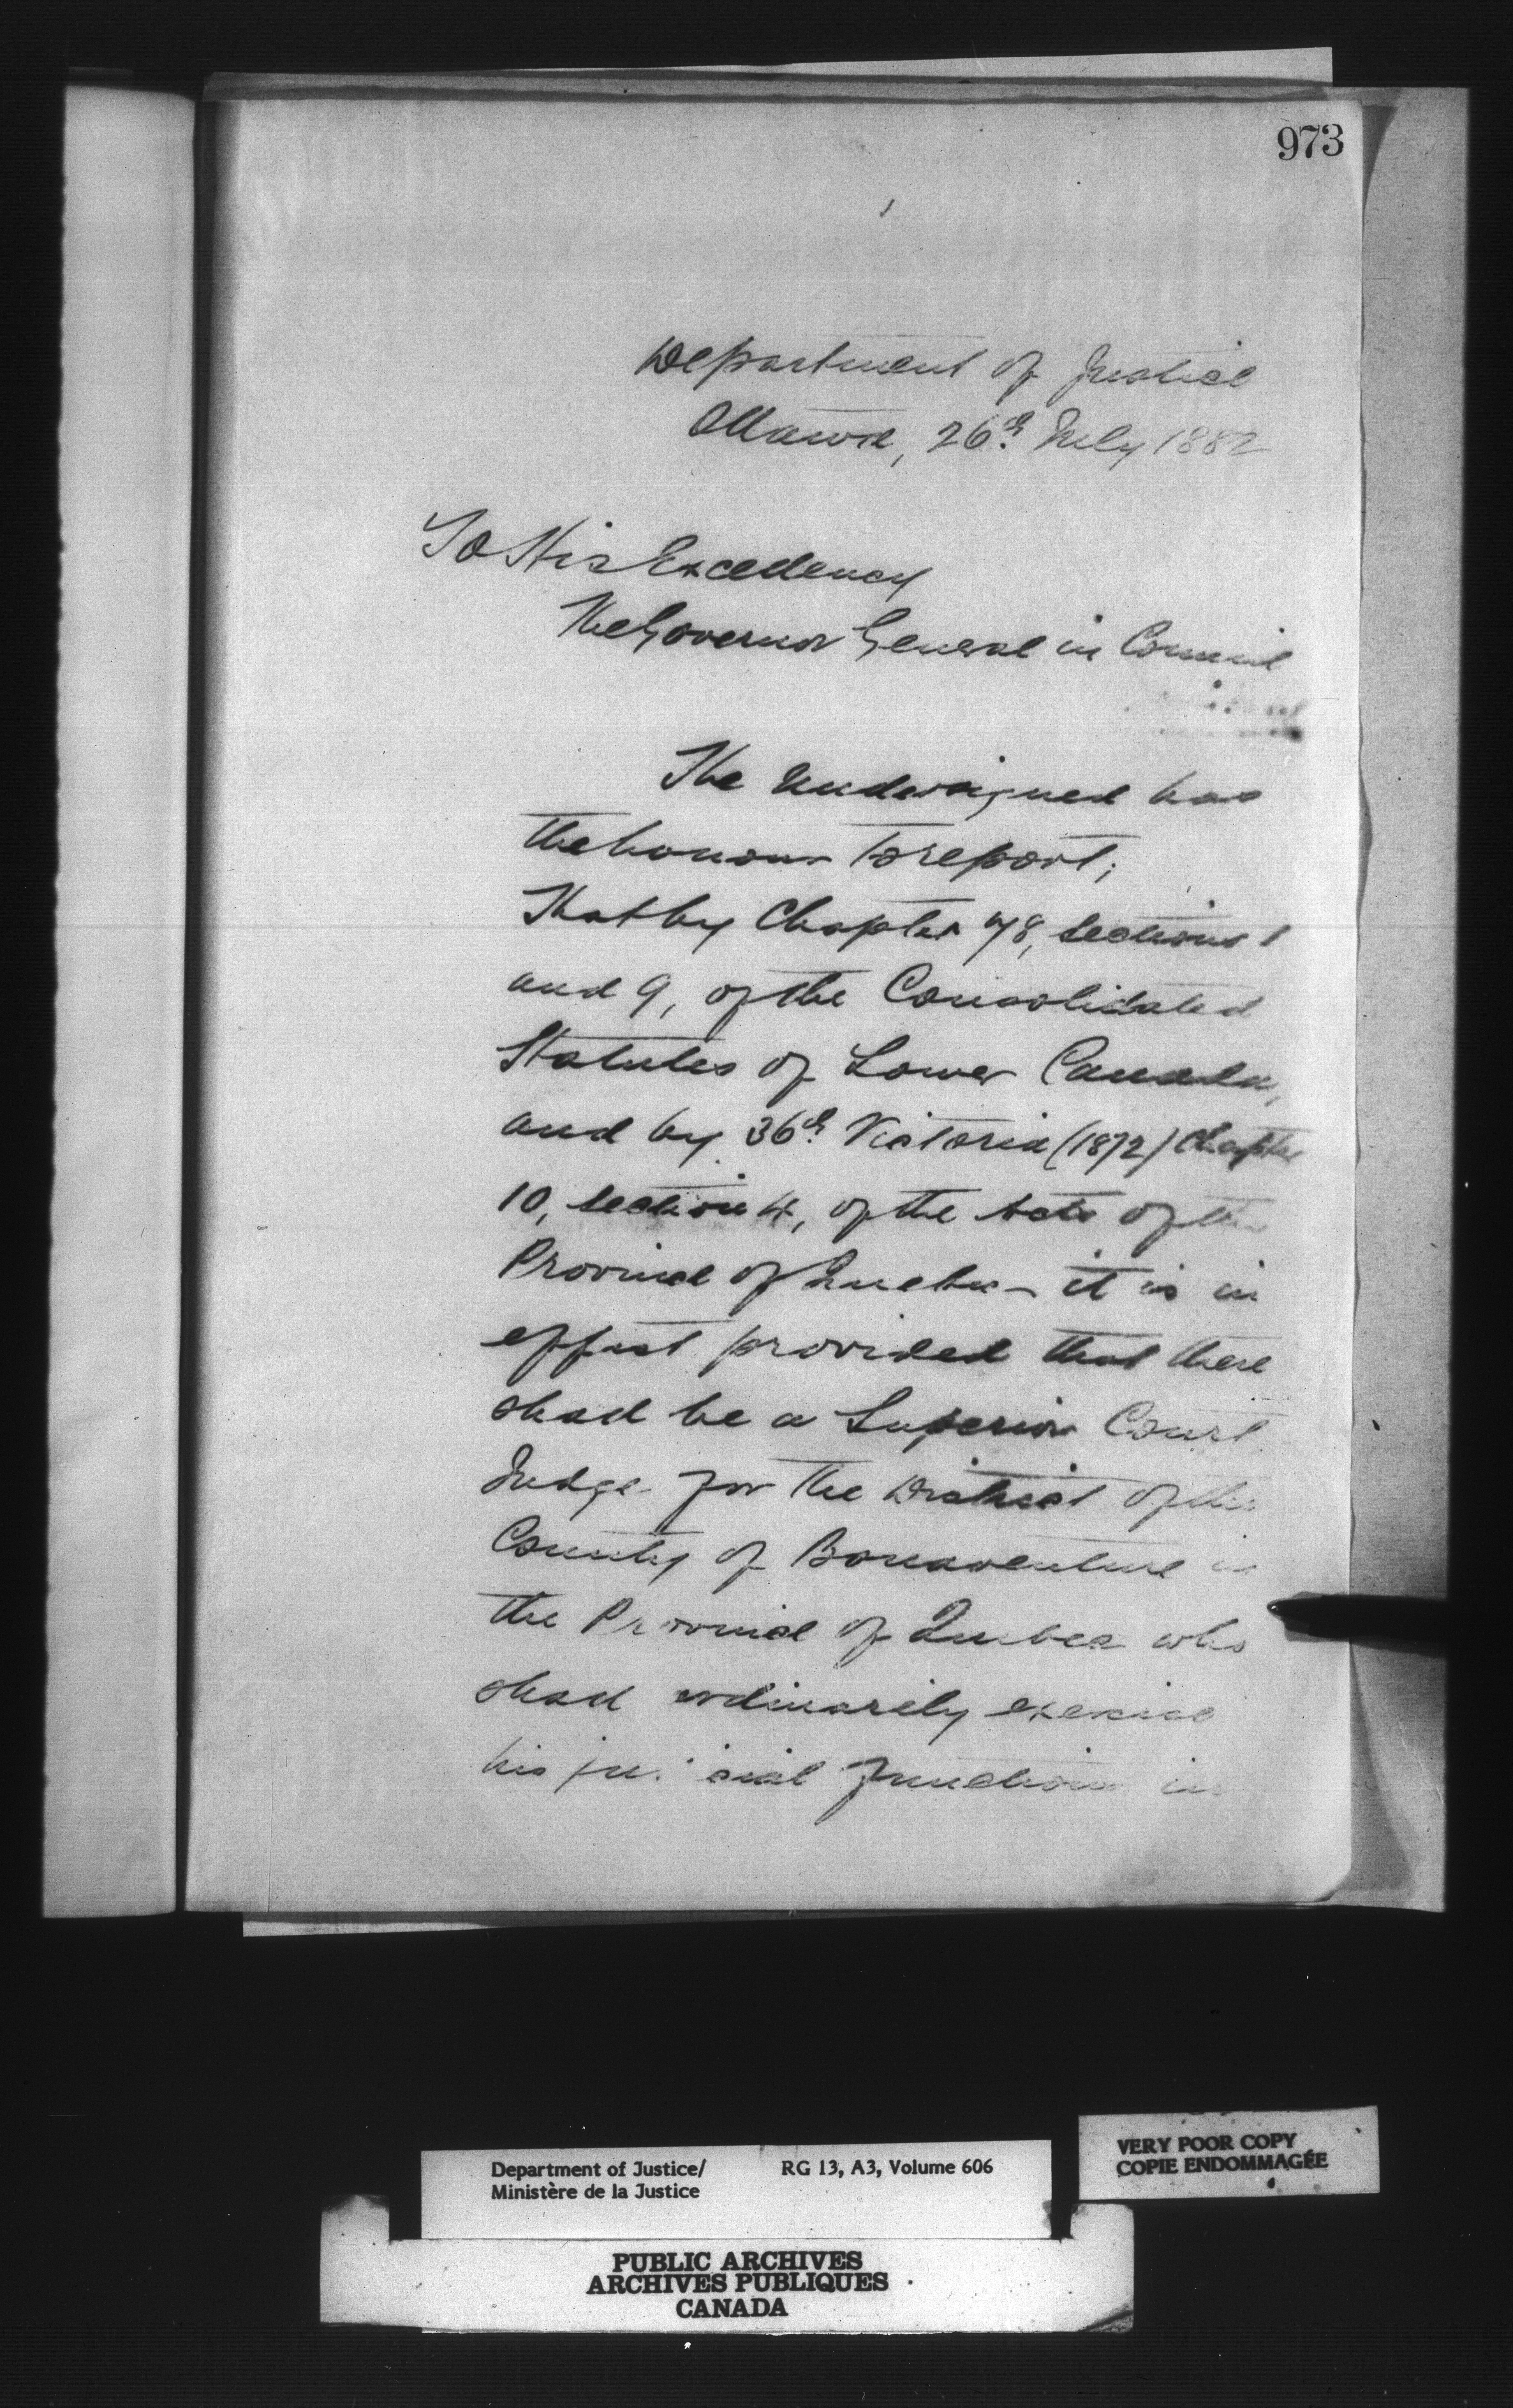 973
Department of Justice
Ottawa, 26th July 1882
To His Excellency
The Governor General in Council
The undersigned has
the honour to report;
That by Chapter 78, sections 1
and 9, of the Consolidated
Statutes of Lower Canada,
and by 36th Victoria (1872) Chapter
10, section 4, of the Acts of the
Province of Quebec - it is in
effect provided that there
shall be a Superior Court
Judge for the District of the
County of Bonaventure in
the Province of Quebec who
shall ordinarily exercise
his judicial functions in
Department of Justice/ RG 13, A3, Volume 606
Ministère de la Justice
VERY POOR COPY
COPIE ENDOMMAGÉE
PUBLIC ARCHIVES
ARCHIVES PUBLIQUES
CANADA